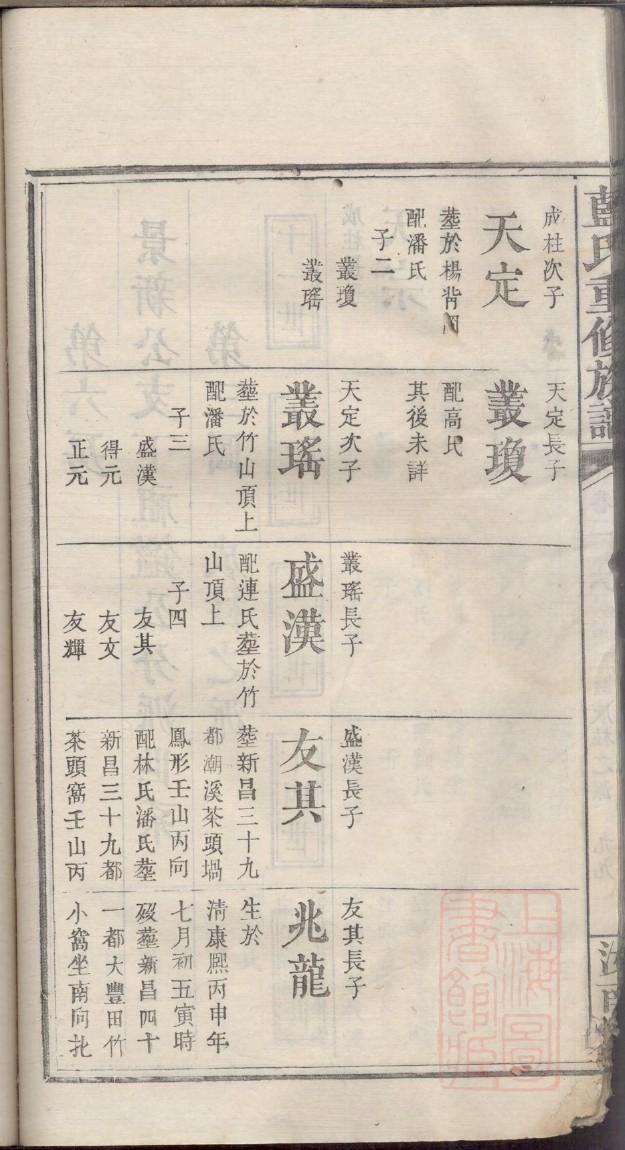 藍氏重修族譜
成柱次子
天定
塟於楊背
配潘氏
子二
叢瓊
叢瑤
天定長子
叢瓊
配高氏
其後未詳
天定次子
叢瑤
塟於竹山頂上
配潘氏
子三
盛漢
得元
正元
叢瑤長子
盛漢
配連氏塟於竹
山頂上
子四
友其
友文
友輝
盛漢長子
友其
塟新昌三十九
都潮溪茶頭塥
鳳形壬山丙向
配林氏潘氏塟
新昌三十九都
茶頭窩壬山丙
友其長子
兆龍
生於
清康熙丙申年
七月初五寅時
歿塟新昌四十
一都大豐田竹
小窩坐南向北
上海圖書館藏